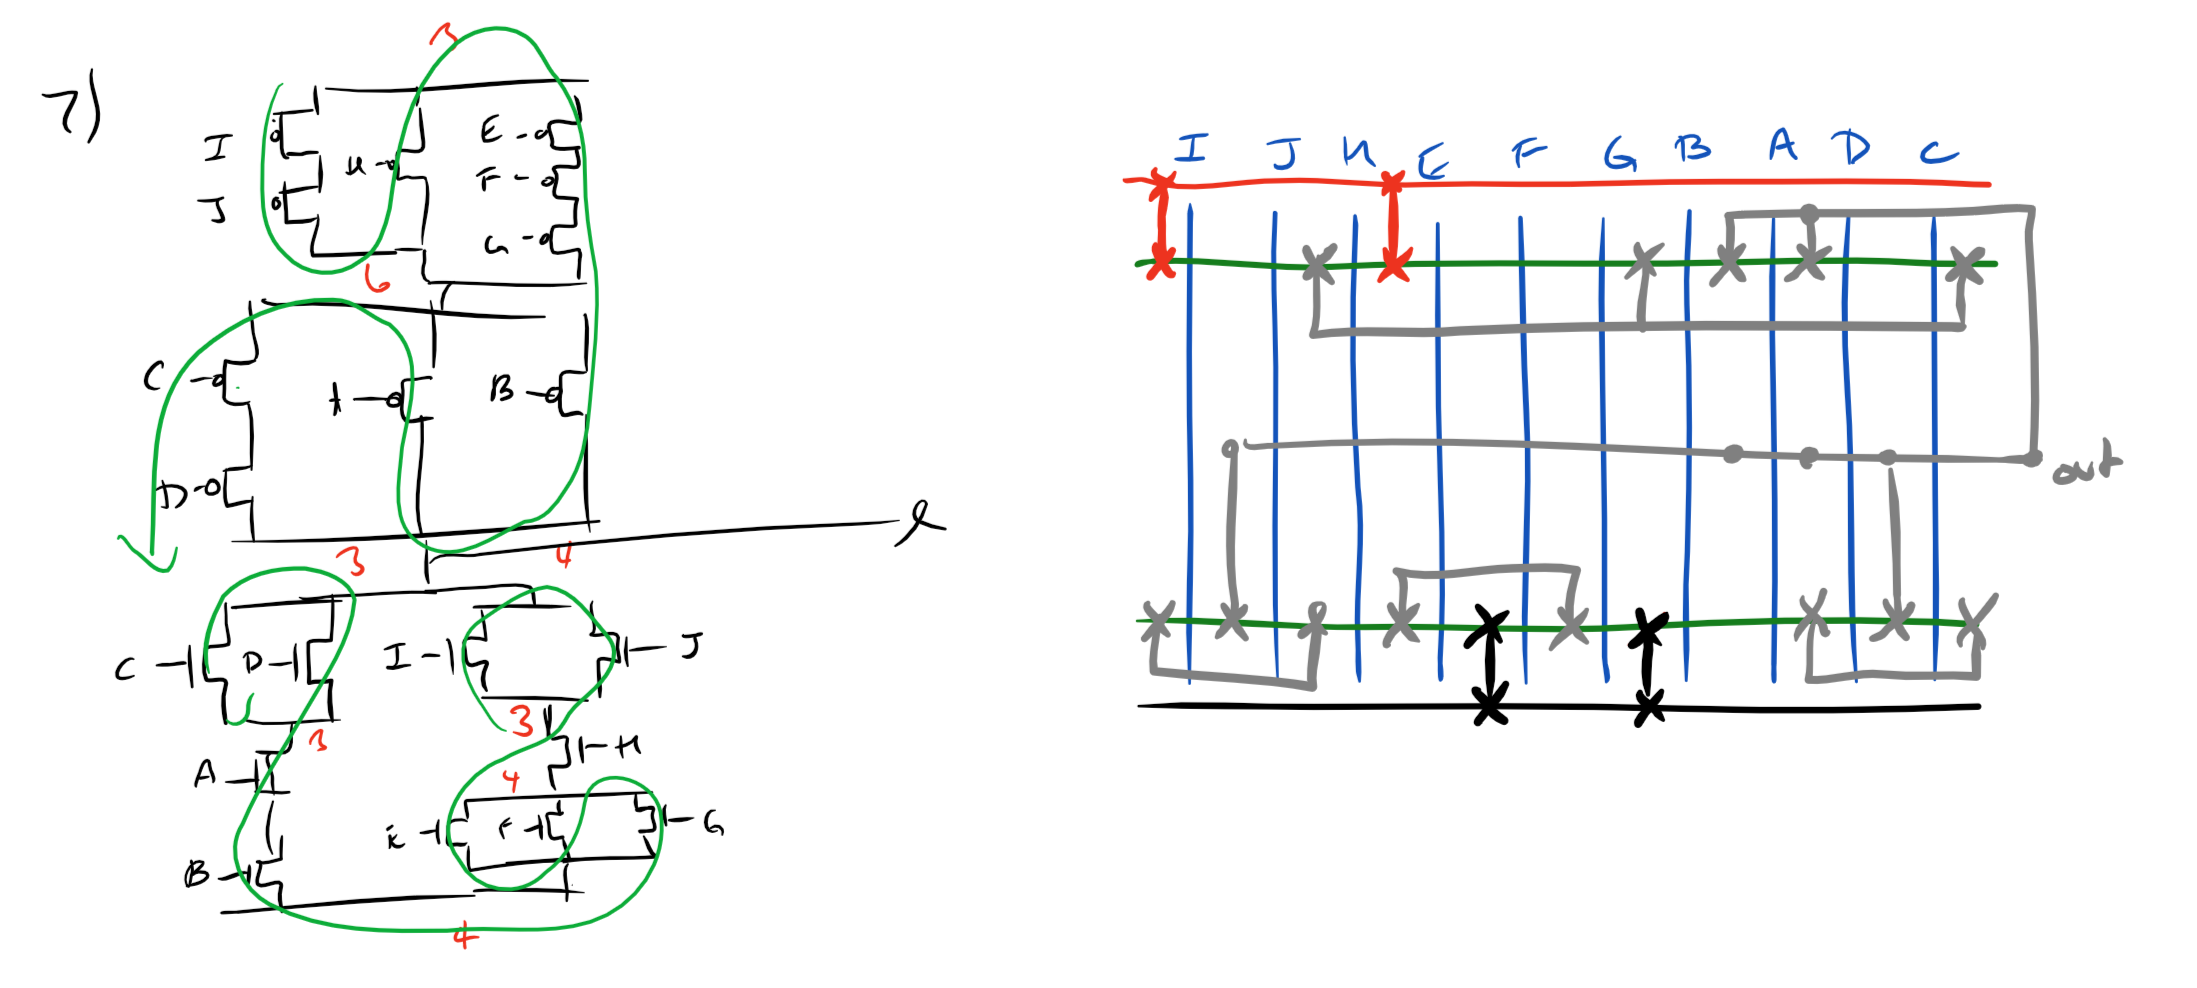 7)
3
I
H
E
J
F
G
6
C
A
B
D
3
4
C
D
I
J
3
3
A
H
4
E
F
G
B
4
I J H E F G B A D C
out